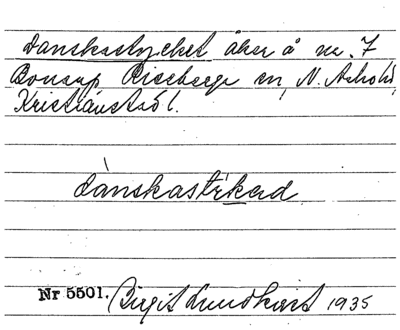 Danskastycket åker å nr. 7
Bonarp Riseberga sn, N. Åsbo hd,
Kristianstad l.
dànskastikad
Nr 5501. Birgit Lundkvist 1935